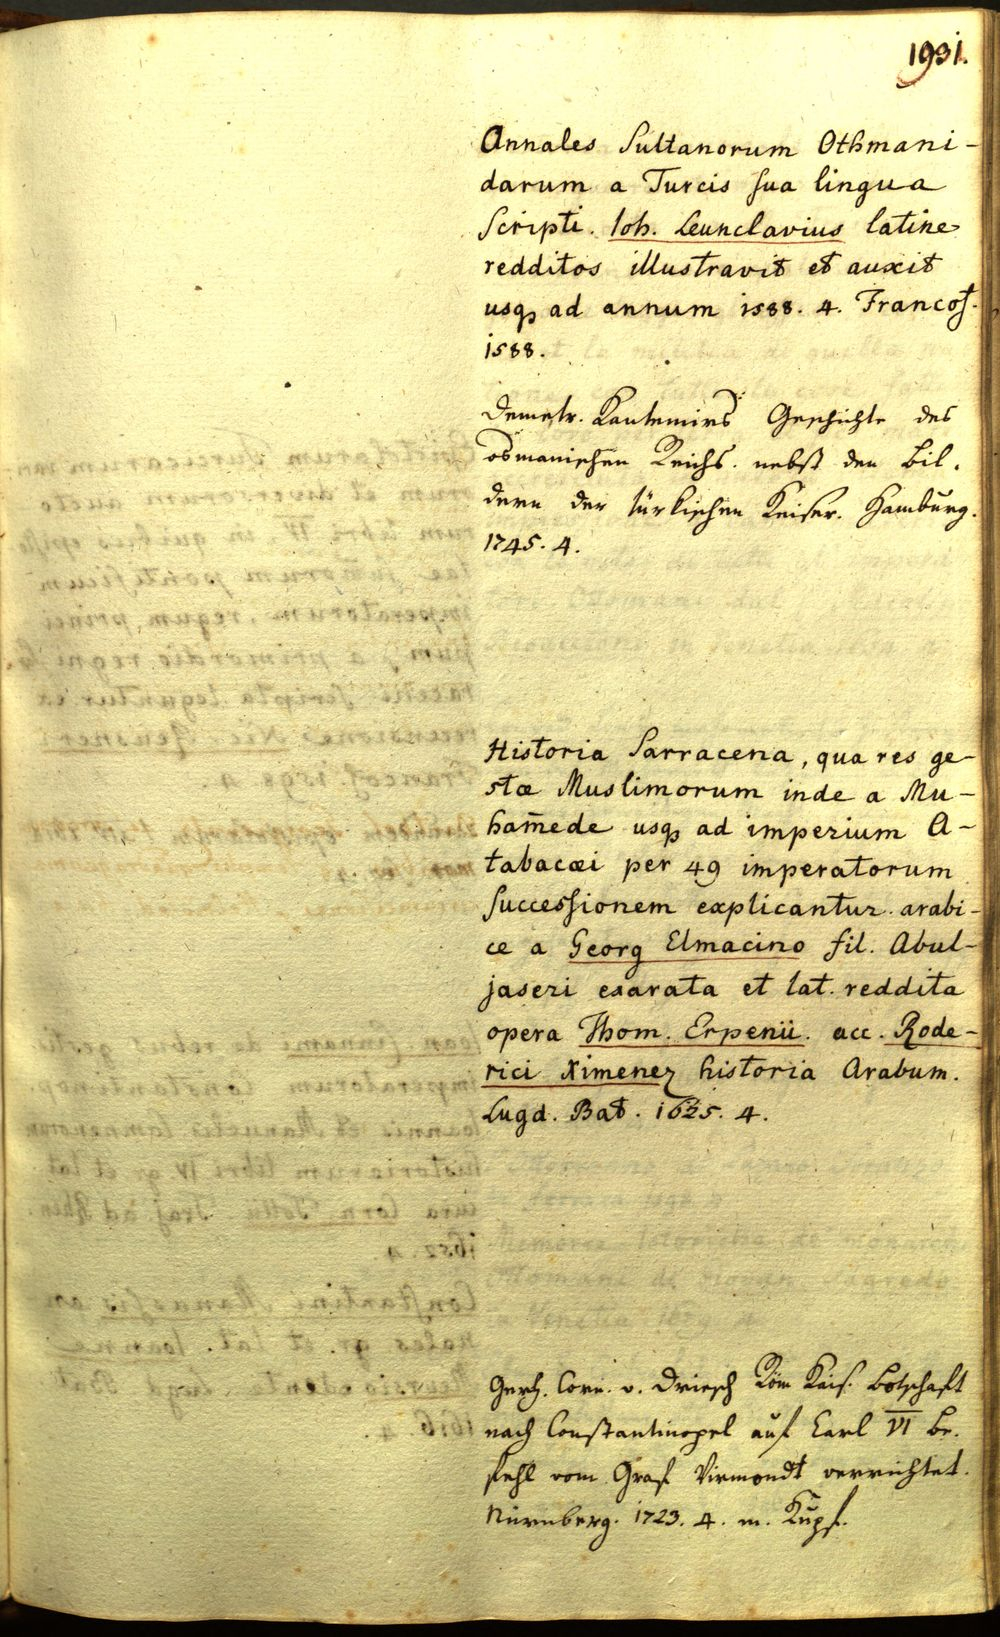 1931.
Annales Sultanorum Othmani-
darum a Turcis sua lingua
Scripti. Ioh. Leunclavius latine
redditos illustravit et auxit
usq ad annum 1588. 4. Francof.
1588.
Demetr. Kantemirs Geschichte des
osmanischen Reichs. nebst den Bil-
dern der türkischen Keiser. Hamburg.
1745. 4.
Historia Sarracena, qua res ge-
stæ Muslimorum inde a Mu-
ham̄ede usq ad imperium A-
tabacæi per 49 imperatorum
Successionem explicantur. arabi-
ce a Georg Elmacino fil. Abul-
jaseri exarata et lat. reddita
opera Thom. Erpenii. acc. Rode-
rici Ximenez historia Arabum.
Lugd. Bat. 1625. 4.
Gerh. Corn. v. Driesch Röm Kais. Botschaft
nach Constantinopel auf Carl VI Be-
fehl vom Graf Virmondt verrichtet.
Nürnberg. 1723. 4. m. Kupf.